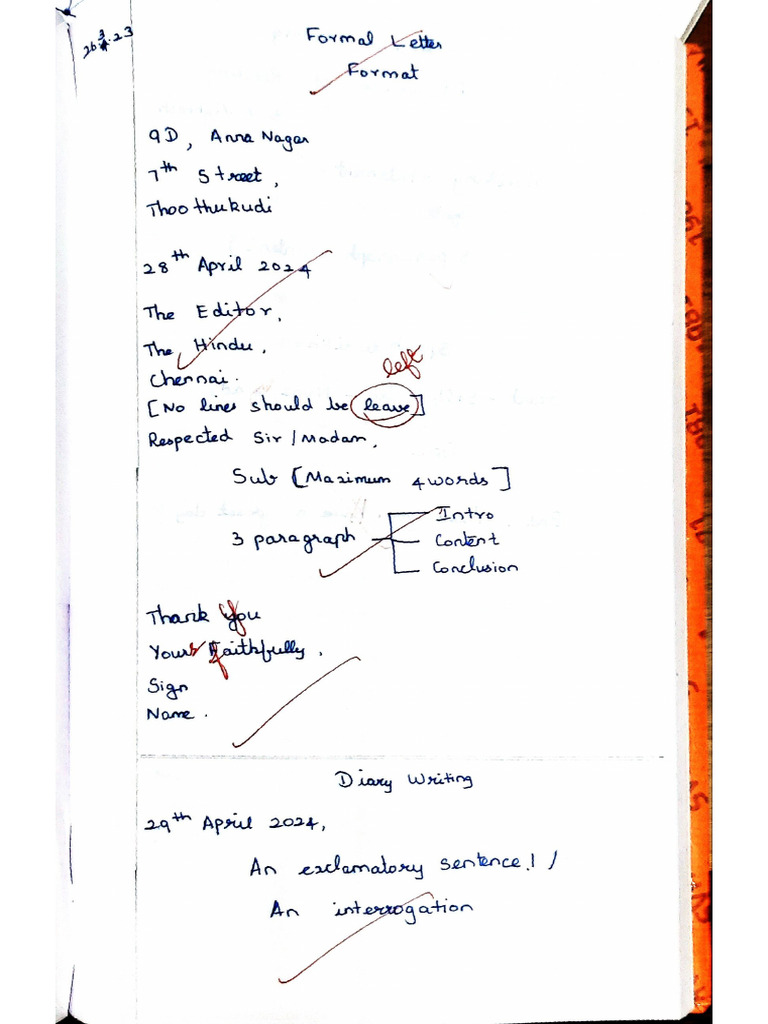 26.3.23
Formal Letter
Format
9D, Anna Nagar
7th Street,
Thoothukudi
28th April 2024
The Editor,
The Hindu,
Chennai.
left
[No lines should be leave]
Respected Sir/Madam,
Sub [Maximum 4 words]
Intro
3 paragraph
Content
Conclusion
Thank you
Yours faithfully,
Sign
Name.
Diary Writing
29th April 2024,
An exclamatory sentence! /
An interrogation